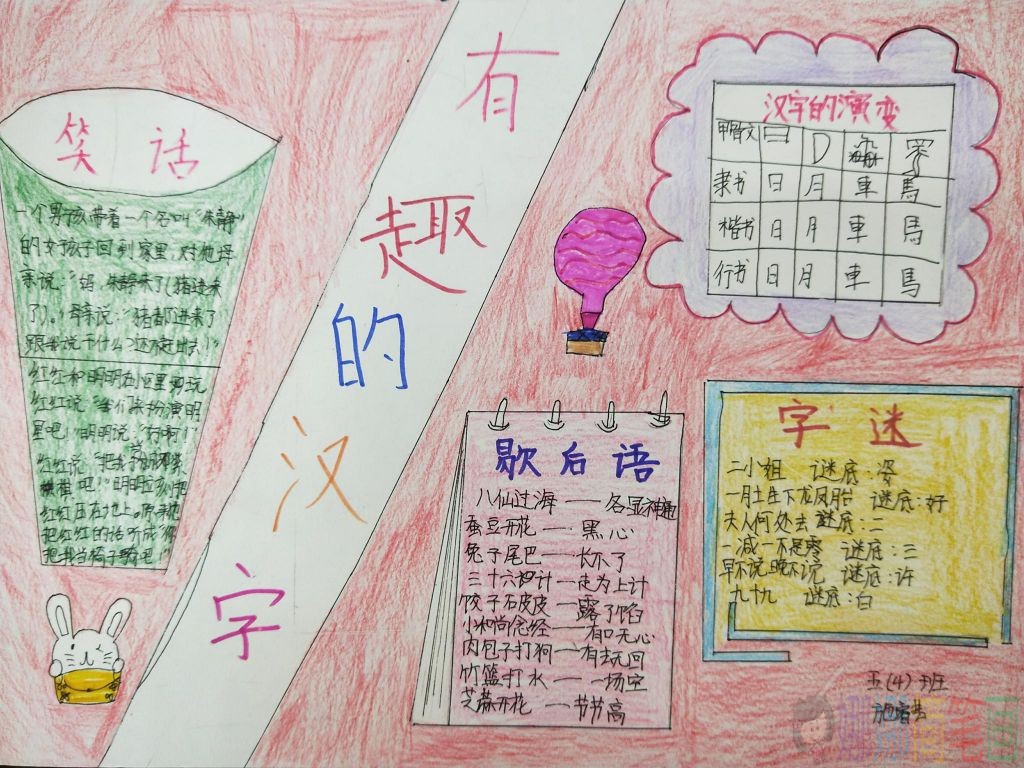 有趣的汉字
笑话
一个男孩带着一个名叫“朱静”
的女孩子回到家里,对他母
亲说:“妈,朱静来了(猪进来
了)。”母亲说:“猪都进来了
跟我说干什么?还不赶出去!”
红红和明明在小区里
红红说“
星吧!”明明说“行啊!”
红红说“把我
吧!”明明
红红压在地上。原来他
把红红的话听成“你
把我当椅子骑吧”
汉字的演变
甲骨文
隶书 日 月 車 馬
楷书 日 月 車 馬
行书 日 月 車 馬
歇后语
八仙过海——各显神通
蚕豆开花——黑心
兔子尾巴——长不了
三十六计—走为上计
饺子石皮皮—露了馅
小和尚念经—有口无心
肉包子打狗—有去无回
竹篮打水—一场空
芝麻开花—节节高
字迷
二小姐 谜底:姿
一月土生下龙凤胎 谜底:好
夫人何处去 谜底:二
一减一不是零 谜底:三
早不说晚不说 谜底:许
九十九 谜底:白
五(4)班